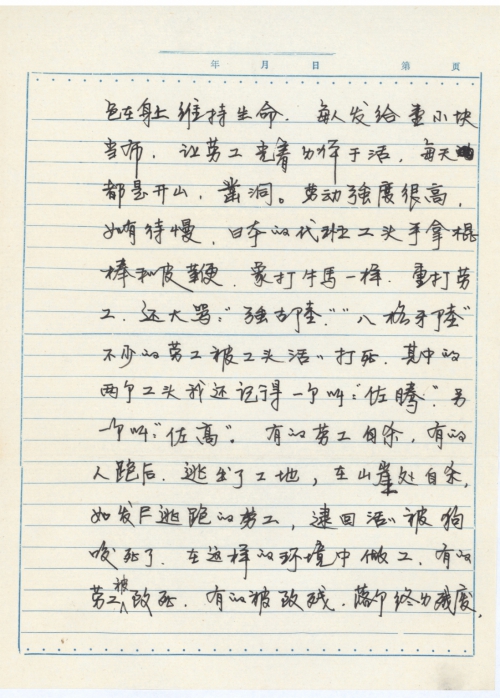 年 月 日 第 页
包在身上维持生命. 每人发给壹小块
当布, 让劳工光着身体干活, 每天
都是开山, 凿洞。劳动强度很高,
如有待慢, 日本的代班工头手拿棍
棒和皮鞭. 象打牛马一样. 重打劳
工. 还大骂:"强古陆.""八格牙陆"
不少的劳工被工头活活打死. 其中的
两个工头我还记得一个叫:"佐腾". 另
一个叫:"佐高"。有的劳工自杀, 有的
人跑后. 逃出了工地, 在山崖处自杀,
如发尸逃跑的劳工, 逮回活活被狗
咬死了. 在这样的环境中做工. 有的
劳工被致死. 有的被致残. 落个终身残废.